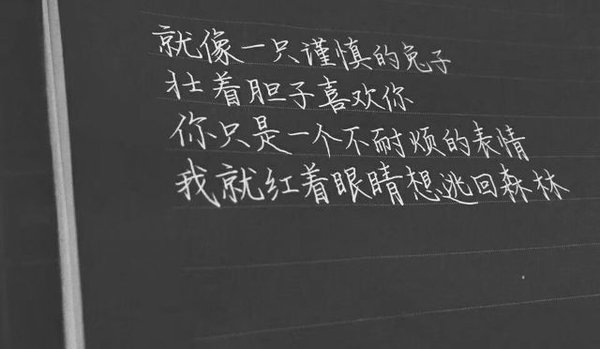 就像一只谨慎的兔子
壮着胆子喜欢你
你只是一个不耐烦的表情
我就红着眼睛想逃回森林